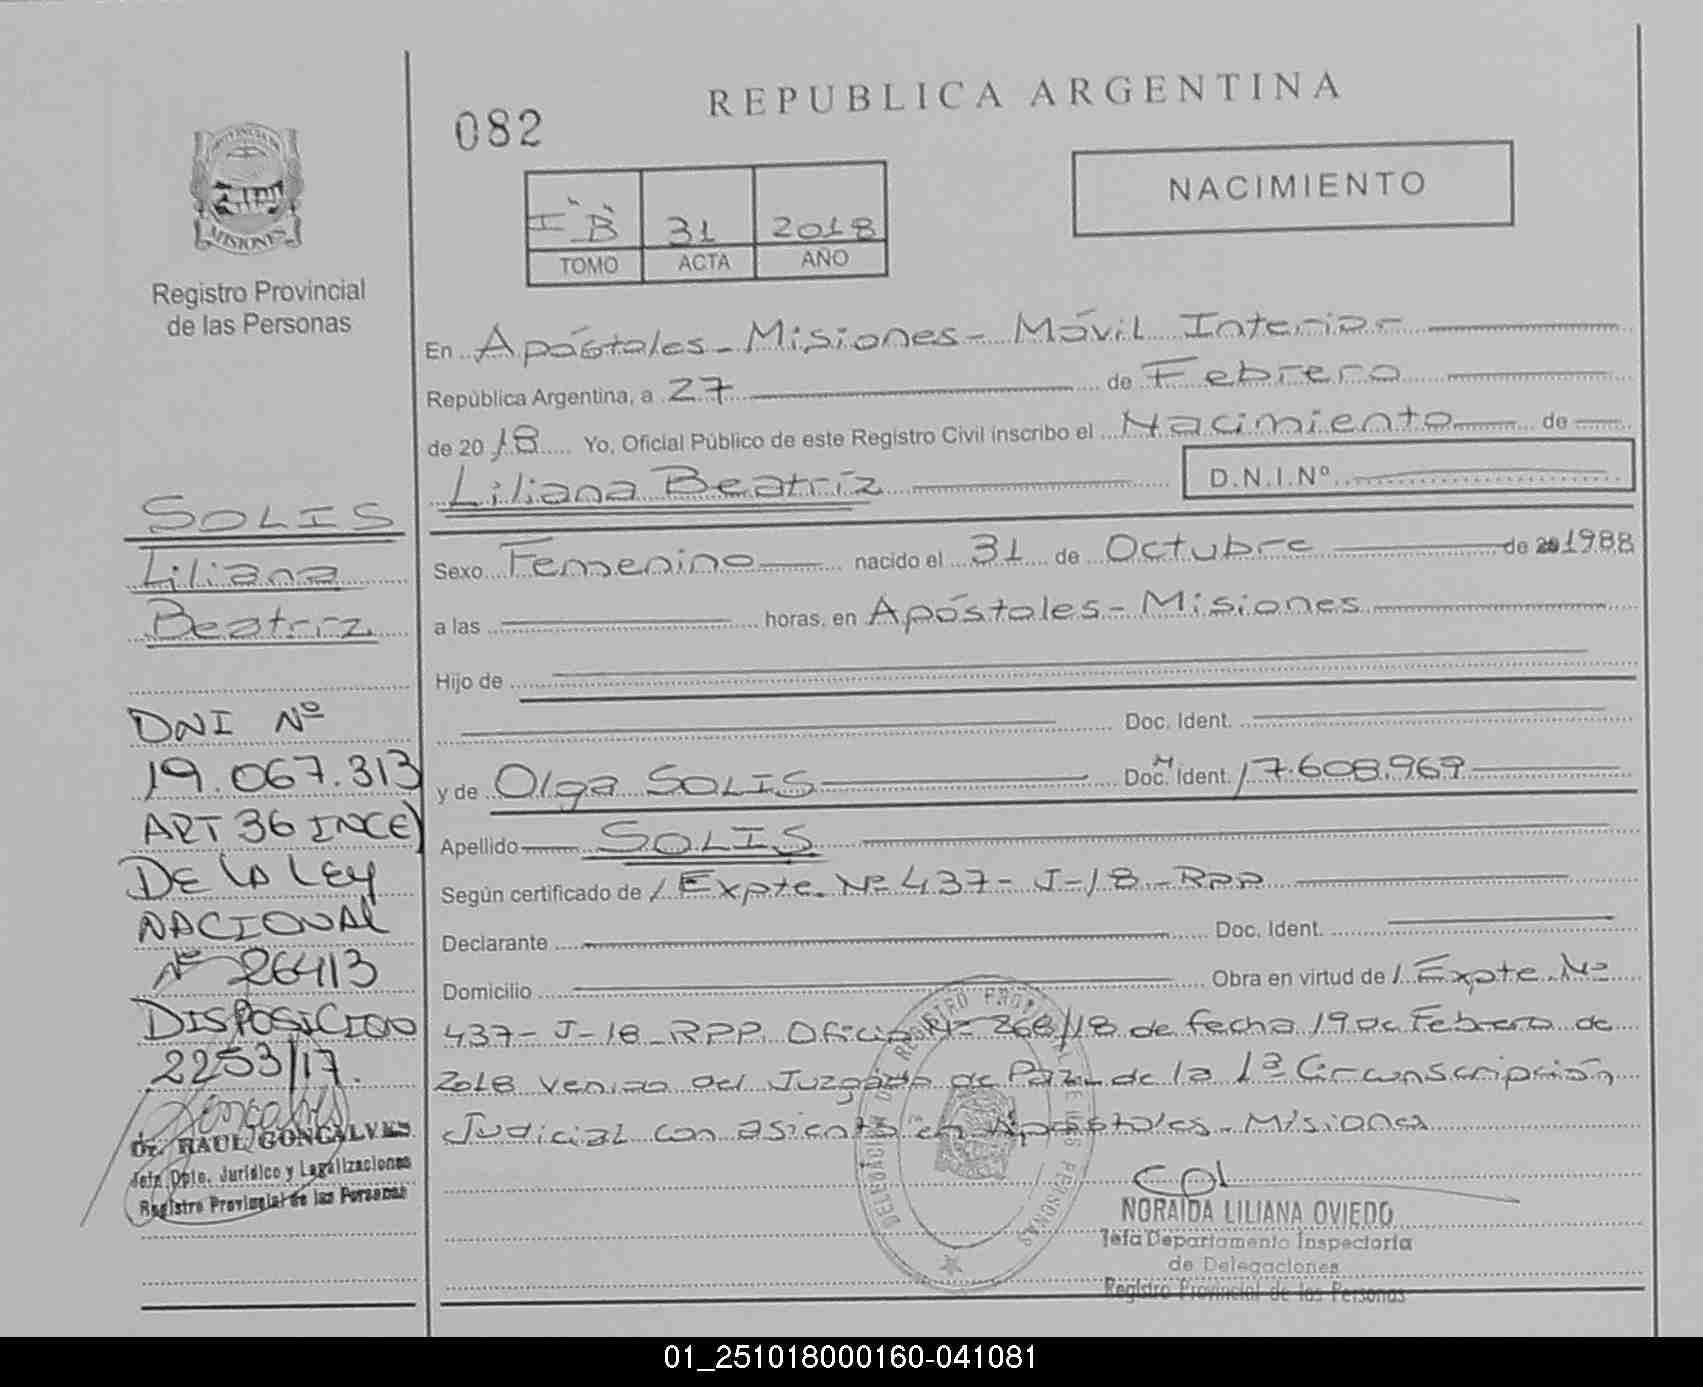 REPUBLICA ARGENTINA
082
NACIMIENTO
I "B" 31 2018
TOMO ACTA AÑO
PROVINCIA DE
MISIONES
Registro Provincial
de las Personas
SOLIS
Liliana
Beatriz
DNI Nº
19.067.313
ART 36 INC E)
DE LA LEY
NACIONAL
Nº 26413
DISPOSICION
2253/17.
Dr. RAUL GONCALVES
Jefe Dpto. Jurídico y Legalizaciones
Registro Provincial de las Personas
En Apóstoles - Misiones - Móvil Interior
República Argentina, a 27 de Febrero
de 2018 Yo, Oficial Público de este Registro Civil inscribo el Nacimiento de
Liliana Beatriz D.N.I.Nº
Sexo Femenino nacido el 31 de Octubre de 1988
a las horas, en Apóstoles - Misiones
Hijo de
Doc. Ident.
y de Olga SOLIS Doc. M Ident. 17.608.969
Apellido SOLIS
Según certificado de / Expte. Nº 437 - J - 18 - RPP
Declarante Doc. Ident.
Domicilio Obra en virtud de / Expte. Nº
437 - J - 18 - RPP. Oficio Nº 268/18 de fecha 19 de Febrero de
2018 venido del Juzgado de Paz de la 1ª Circunscripción
Judicial con asiento en Apóstoles - Misiones
DELEGACION DEL REGISTRO PROVINCIAL DE LAS PERSONAS
NORAIDA LILIANA OVIEDO
Jefa Departamento Inspectoría
de Delegaciones
Registro Provincial de las Personas
01_251018000160-041081